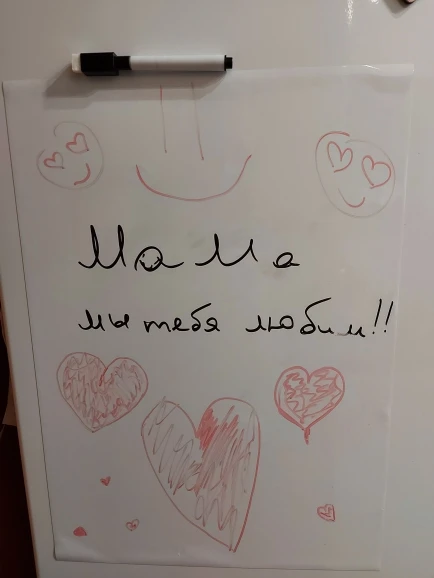 МаМа
мы тебя любим!!